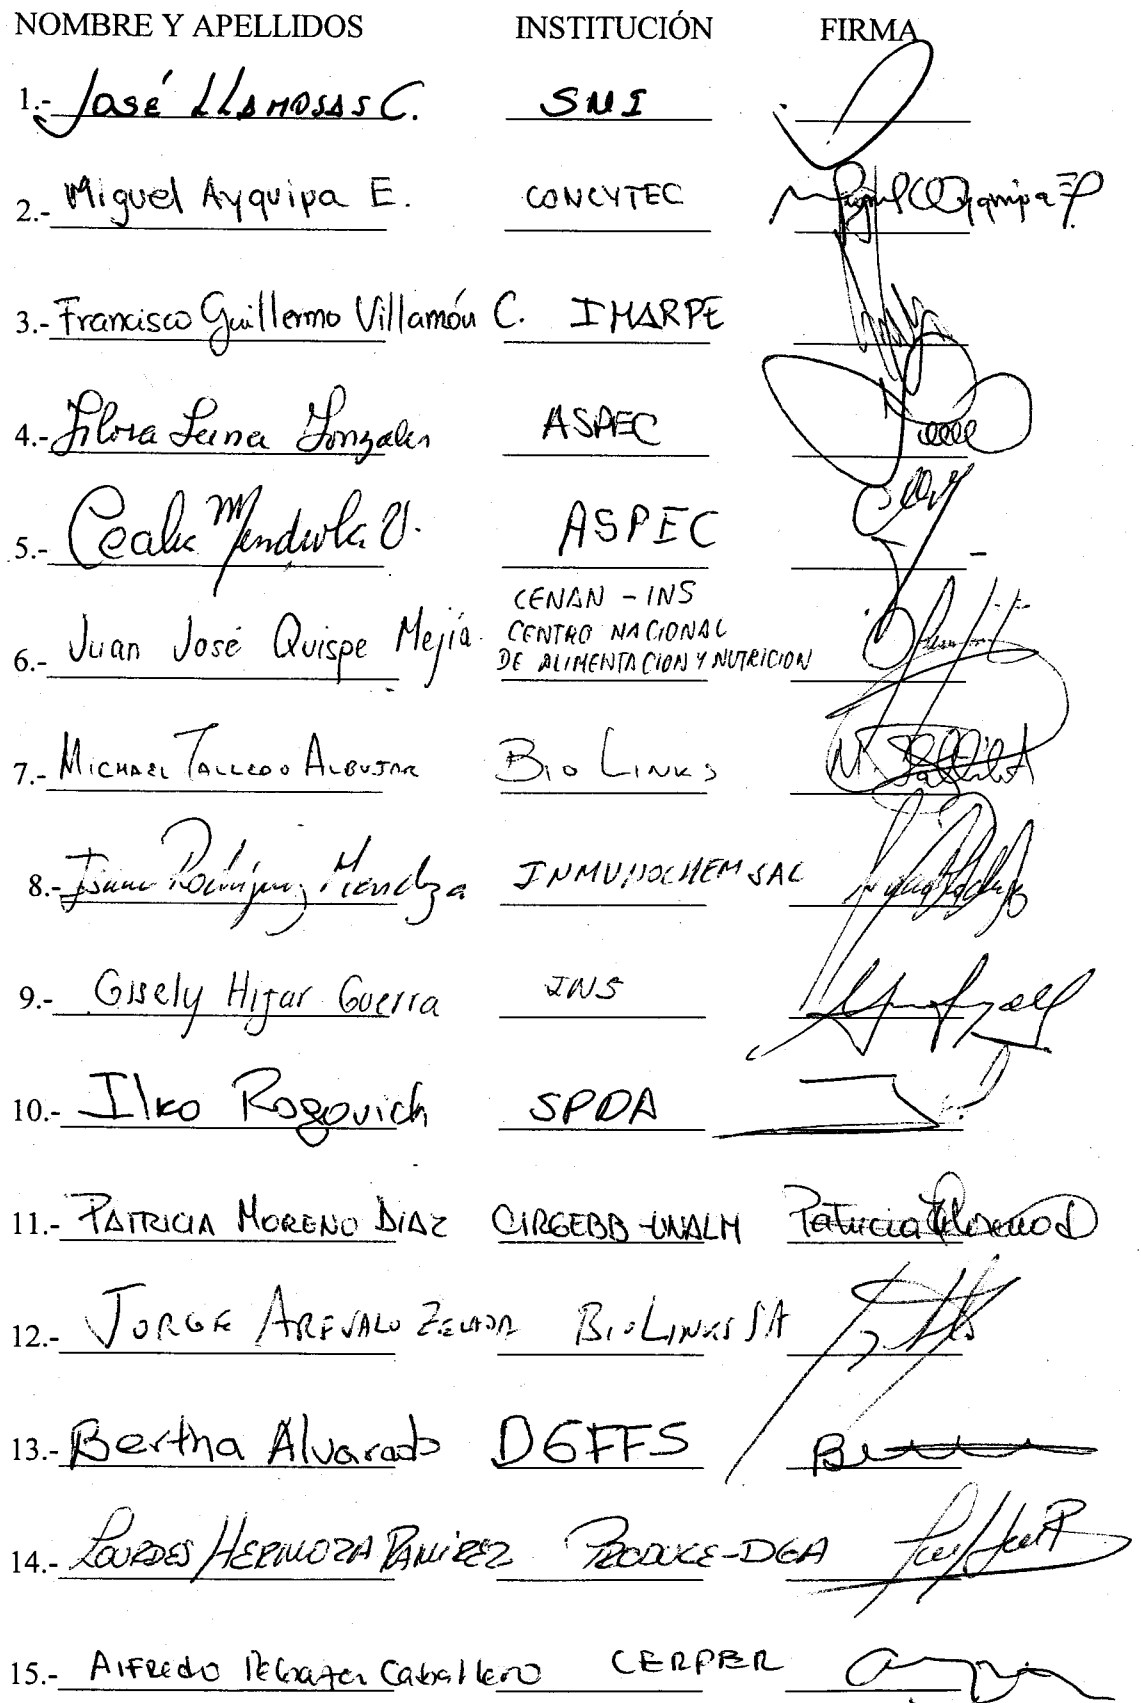 NOMBRE Y APELLIDOS INSTITUCIÓN FIRMA
1.- José LLAMOSAS C. SNI
2.- Miguel Ayquipa E. CONCYTEC Miguel Ayquipa E
3.- Francisco Guillermo Villamón C. IMARPE
4.- Luna Gonzales ASPEC
5.- Mendiola V. ASPEC
6.- Juan José Quispe Mejía CENAN - INS
CENTRO NACIONAL
DE ALIMENTACION Y NUTRICION
7.- MICHAEL TALLEDO ALBUJAR BIO LINKS
8.- Rodríguez Mendoza INMUNOCHEM SAC
9.- Gisely Hijar Guerra INS
10.- Ilko Rogovich SPDA
11.- PATRICIA MORENO DIAZ CIRGEBB-UNALM Patricia Moreno D
12.- JORGE AREVALO ZELADA BIOLINKS SA
13.- Bertha Alvarado DGFFS
14.- LOURDES HERMOZA RAMÍREZ PRODUCE-DGA
15.- Alfredo Caballero CERPER